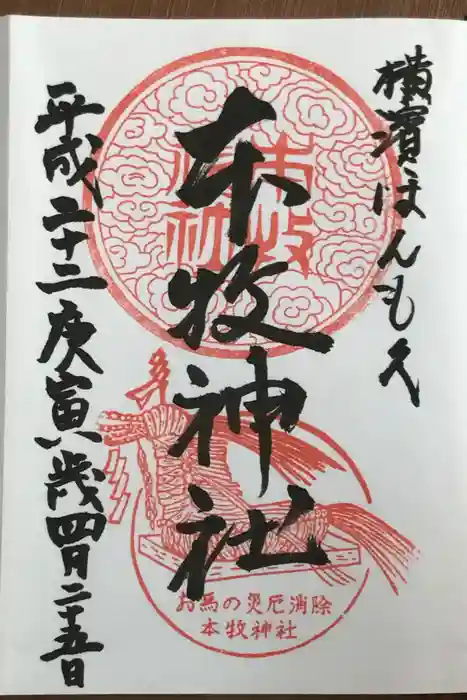 横濱ほんもく
本牧神社
平成二十二庚寅歳四月二十五日
本牧神社
お馬の災厄消除
本牧神社